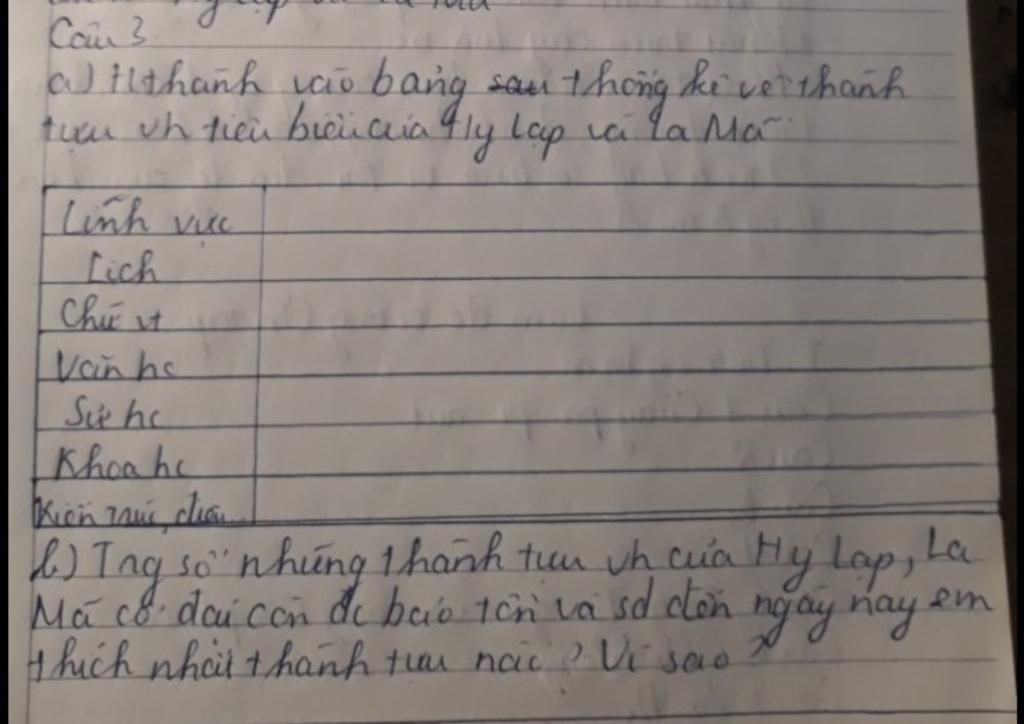 Câu 3
a) Hthành vào bảng sau thống kê về thành
tựu vh tiêu biểu của Hy Lạp và La Mã
Lĩnh vực
Lịch
Chữ vt
Văn hc
Sử hc
Khoa hc
Kiến trúc, điêu
b) Trg số những thành tựu vh của Hy Lạp, La
Mã cổ đại còn đc bảo tồn và sd đến ngày nay em
thích nhất thành tựu nào? Vì sao?